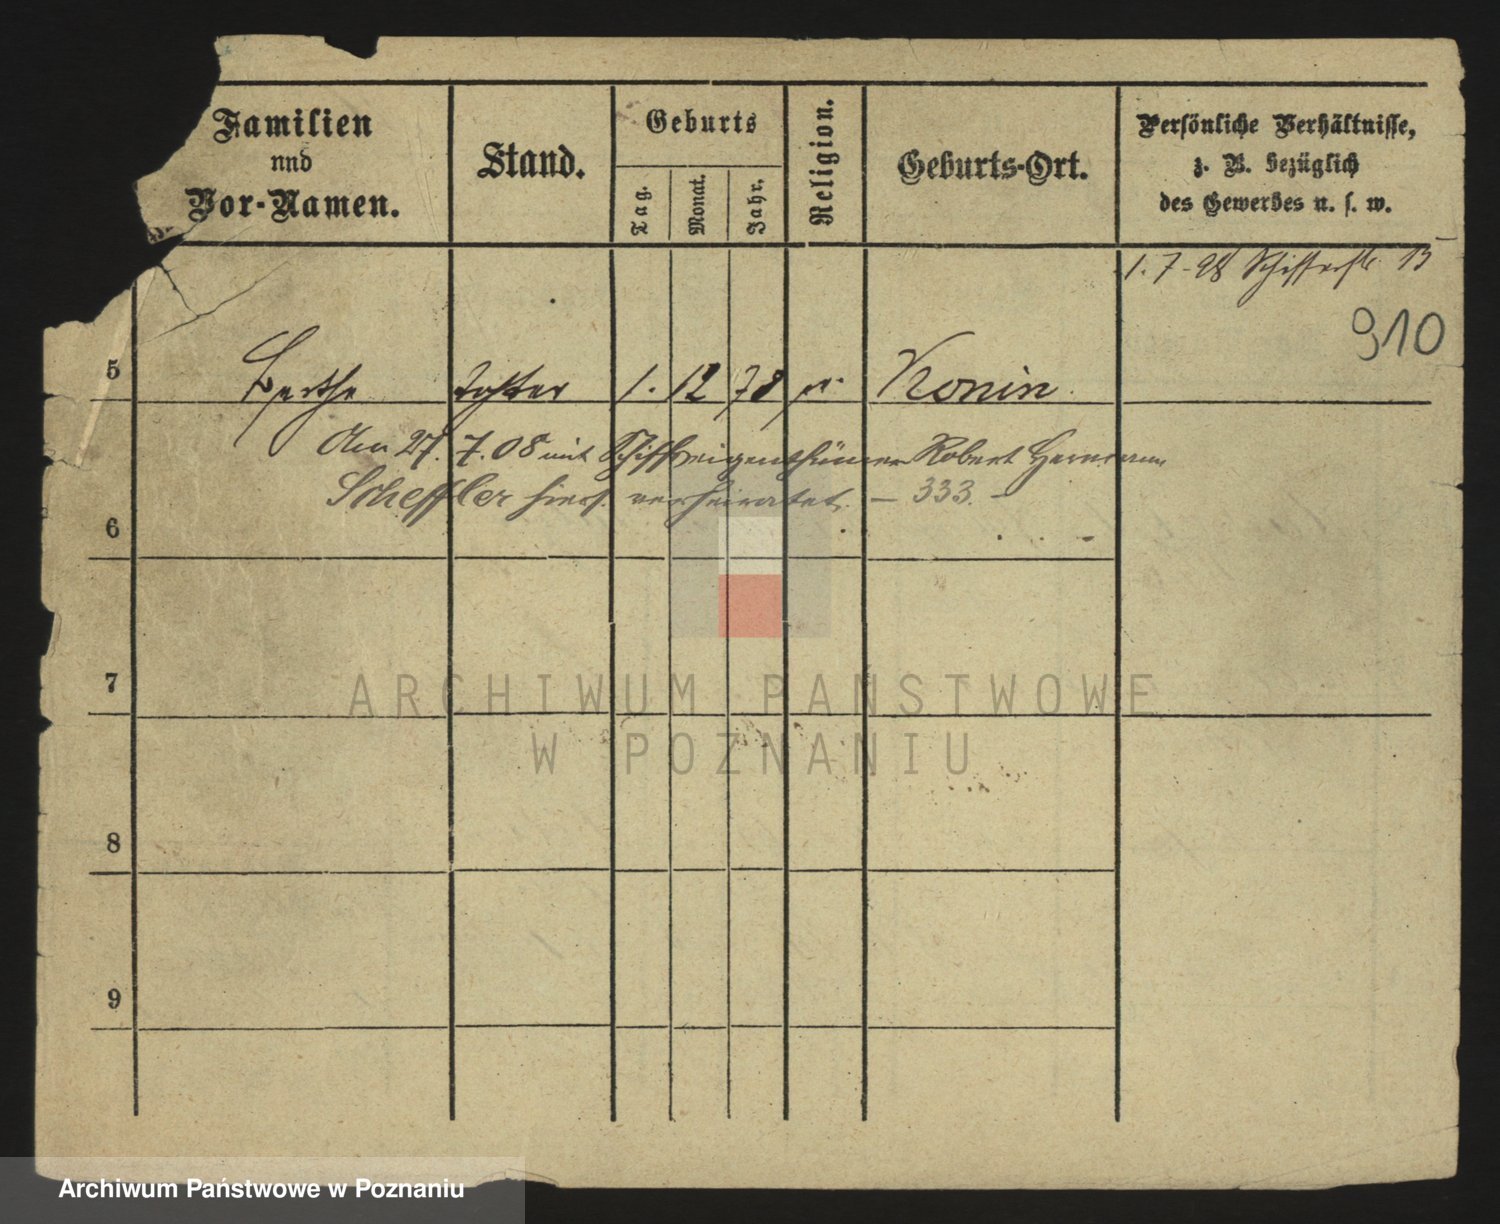 Familien
und
Vor-Namen.
Stand.
Geburts
Tag.
Monat.
Jahr.
Religion.
Geburts-Ort.
Persönliche Verhältnisse,
z. B. bezüglich
des Gewerbes u. s. w.
1. 7. 98 Schifferstr. 15
910
5 Berthe Tochter 1. 12 78 Konin
Am 27. 7. 08 mit Schiffseigenthümer Robert Hermann
Scheffler hiers. verheiratet. – 333. –
6
7
8
9
ARCHIWUM PAŃSTWOWE
W POZNANIU
Archiwum Państwowe w Poznaniu